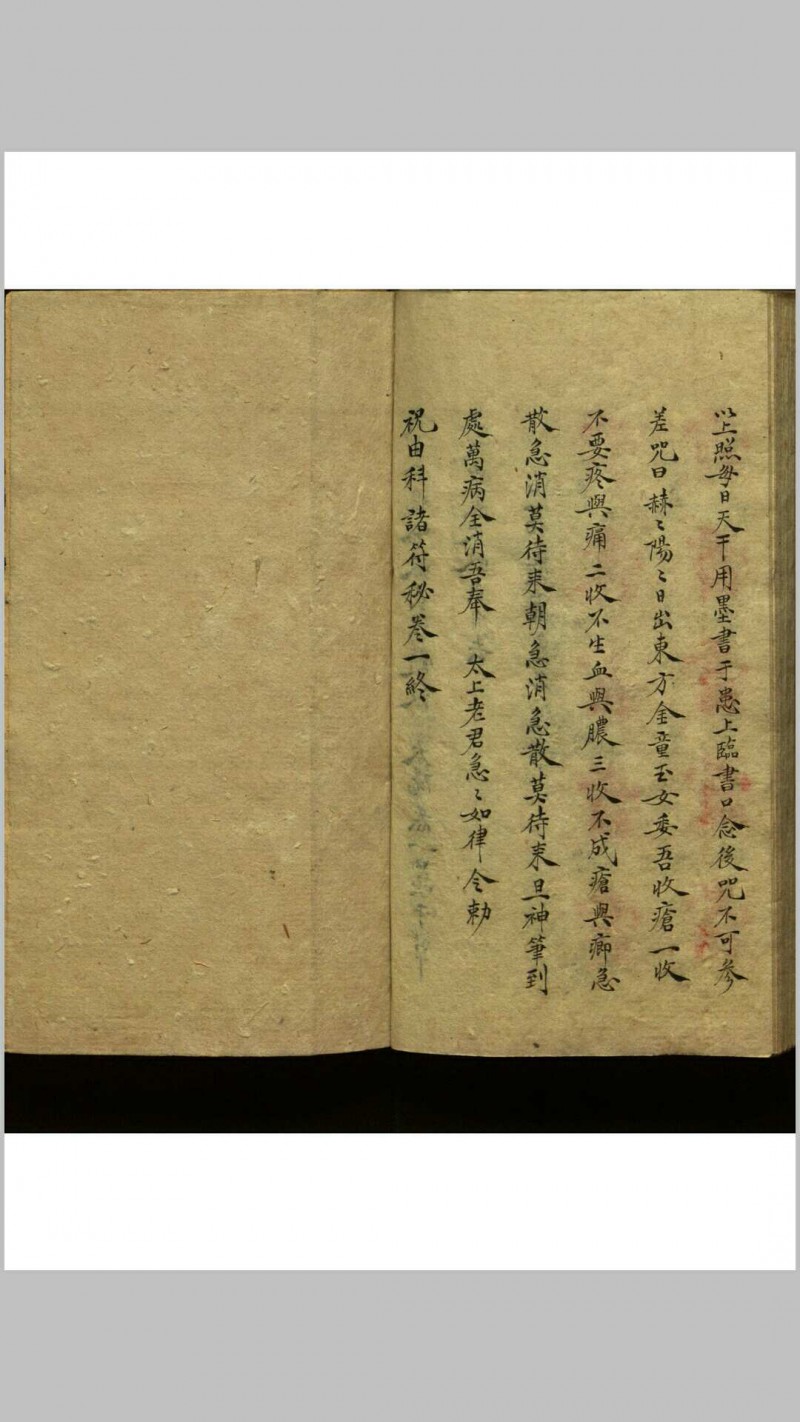 以上照每日天干用墨書于患上臨書口念後咒不可參
差咒曰赫〻陽〻日出東方金童玉女委吾收瘡一收
不要疼與痛二收不生血與膿三收不成瘡與癤急
散急消莫待来朝急消急散莫待来旦神筆到
處萬病全消吾奉 太上老君急〻如律令勅
祝由科諸符秘卷一終